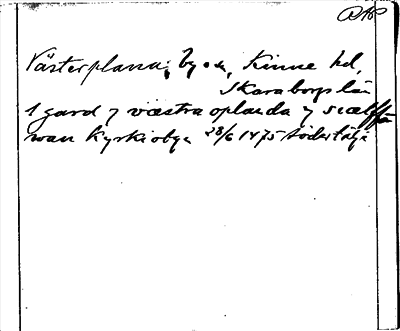 DAP
Västerplana, by o sn, Kinne hd,
Skaraborgs län
1 gard j væstra oplanda j siælffwan kyrkioby 28/6 1475 Södertälje